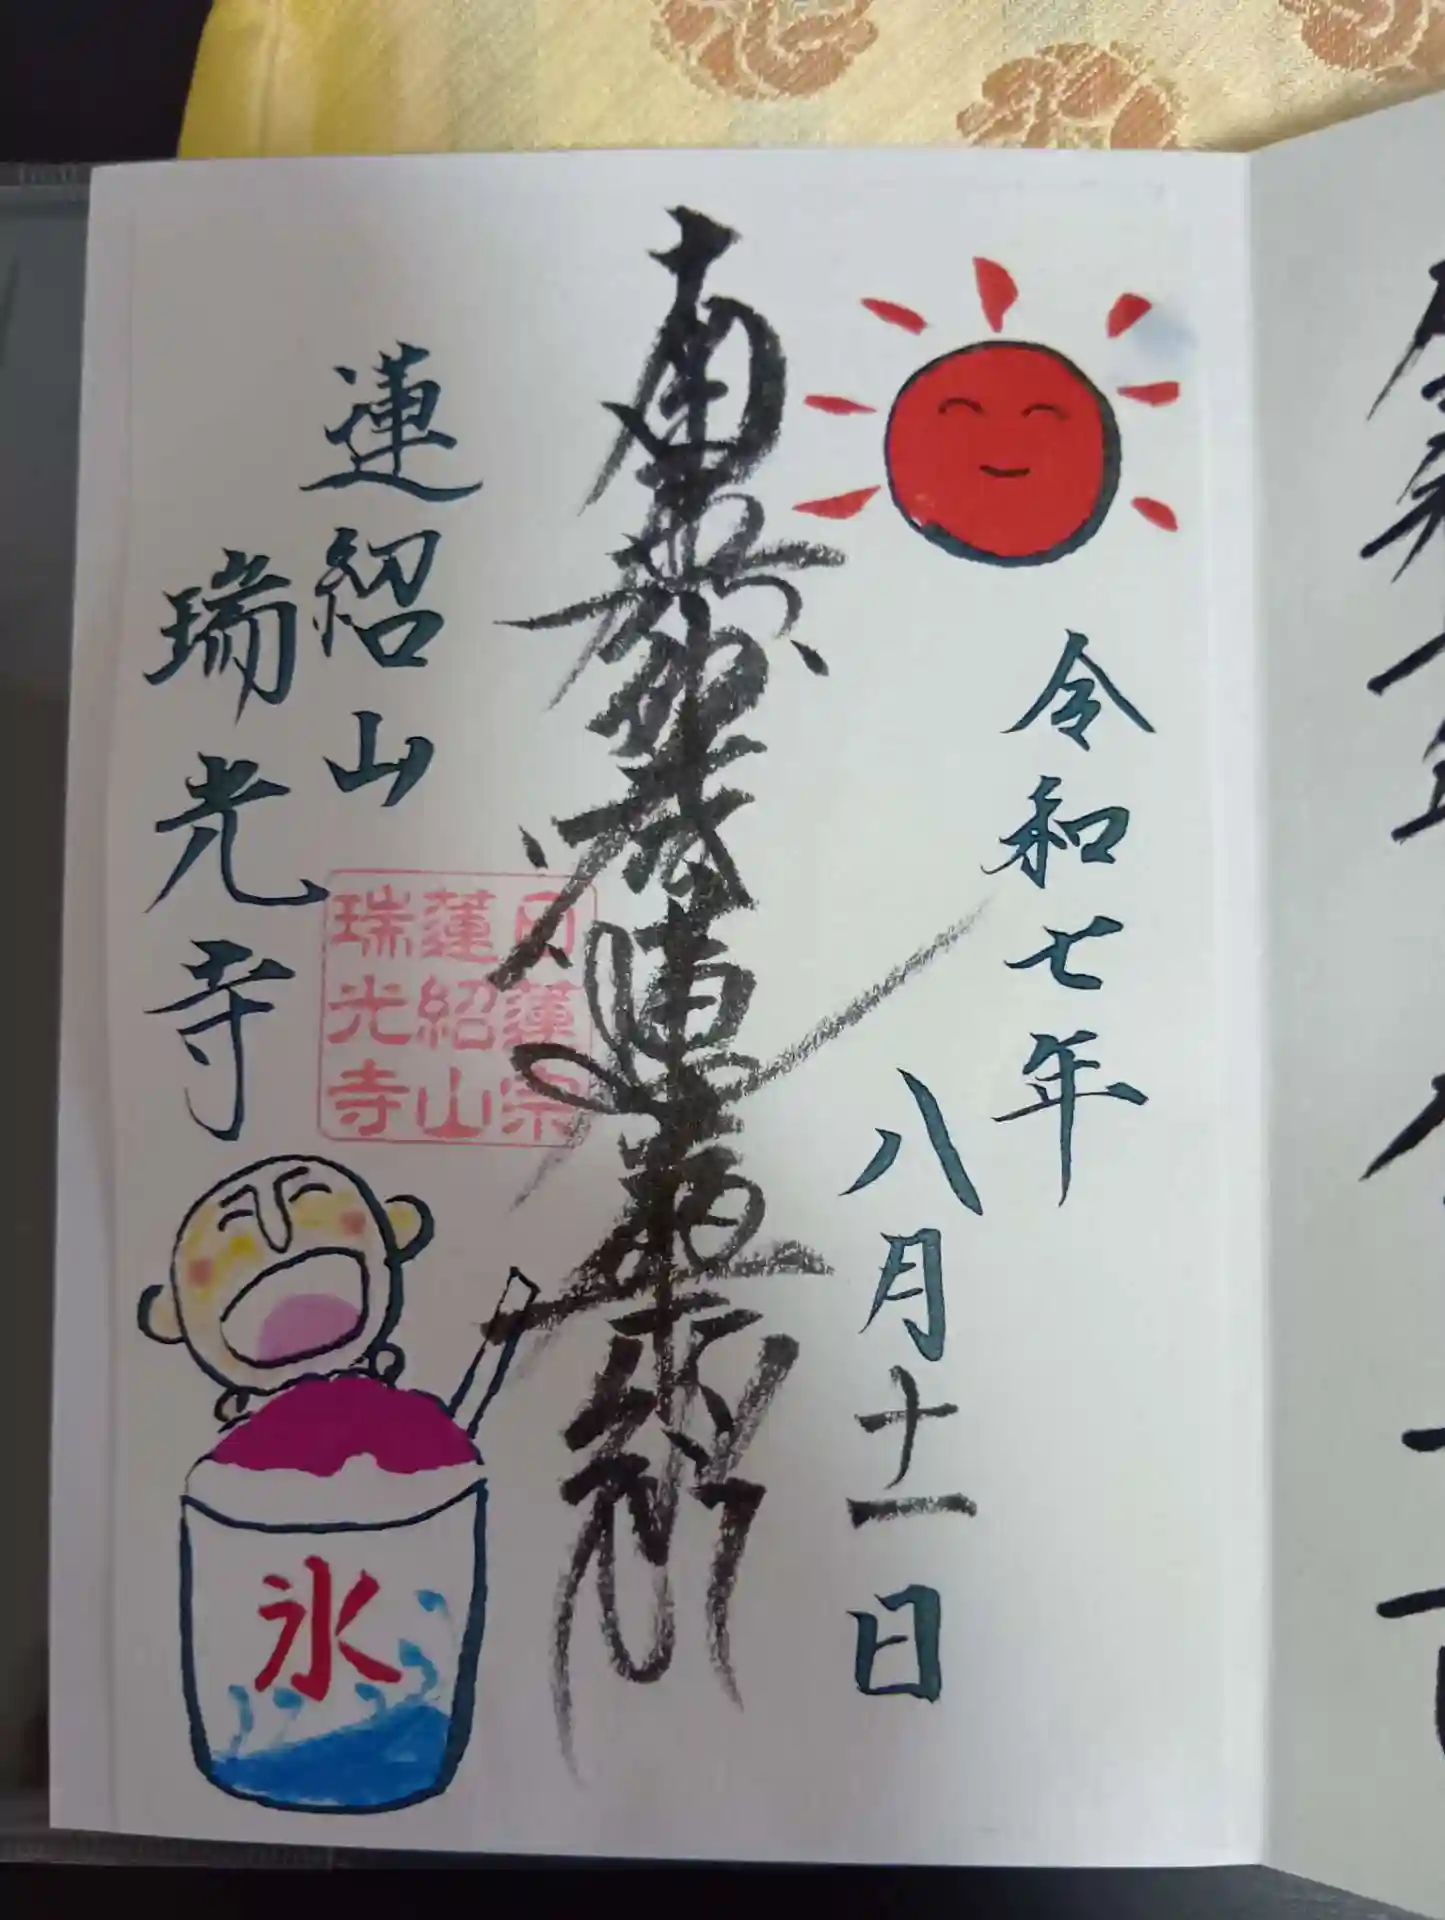 令和七年
八月十一日
南無妙法蓮華経
蓮紹山
瑞光寺
日蓮宗
蓮紹山
瑞光寺
氷